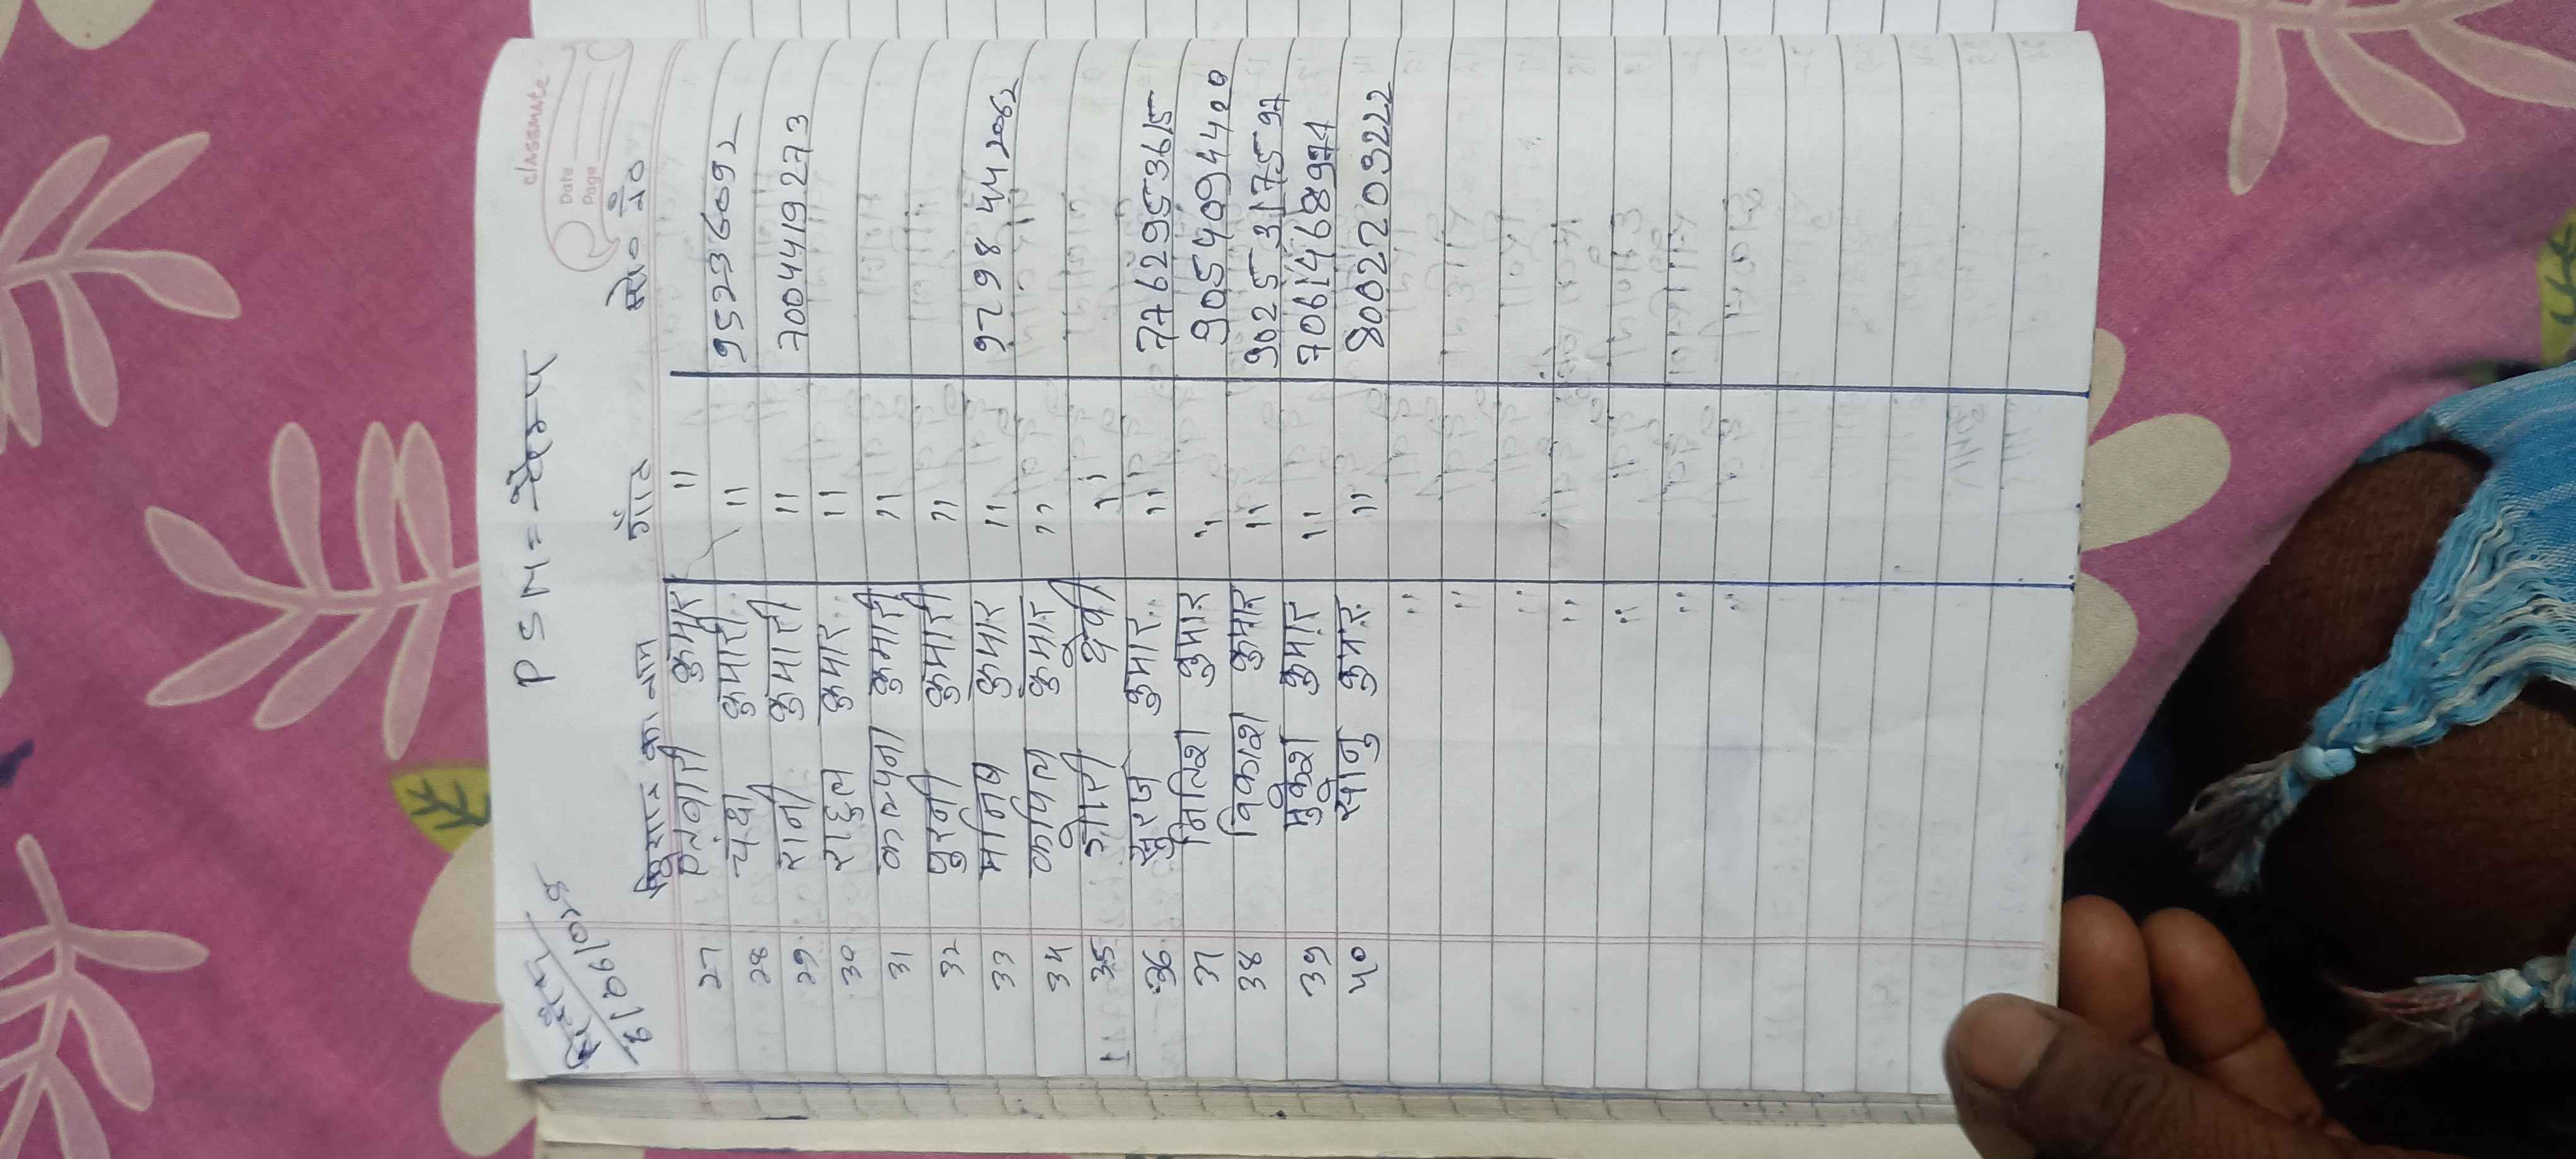 classmate
Date
Page
PSM = कैम्प
8/06/025
किसान का नाम गाँव मो० नं०
27 कुमार "
28 चंदा कुमारी " 9523236092
29 रानी कुमारी " 7004419273
30 राहुल कुमार "
31 कल्पना कुमारी "
32 पुरनी कुमारी "
33 मनिष कुमार " 9729844 2062
34 कपिल कुमार "
35 गोली देवी "
36 सुरज कुमार " 7762953615
37 नितिश कुमार " 9054094420
38 विकाश कुमार " 9025317597
39 मुकेश कुमार " 7061468974
40 सोनु कुमार " 8002203222